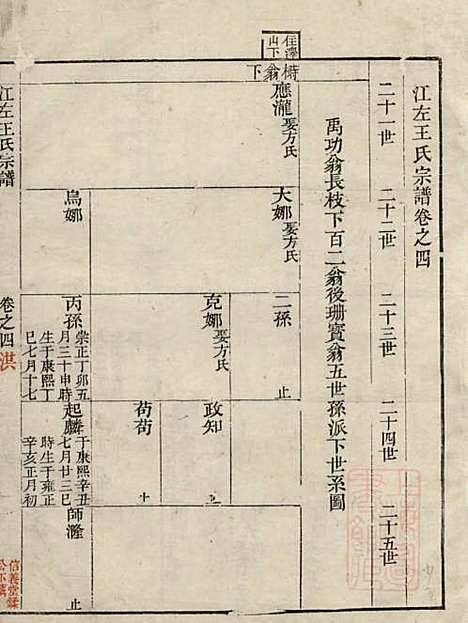 江左王氏宗譜卷之四
二十一世
二十二世
二十三世
二十四世
二十五世
禹功翁長枝下百二翁後珊寶翁五世孫派下世系圖
住澤山下
樹翁下
應瀧娶方氏
大娜娶方氏
二孫 止
克娜娶方氏
政知
苟苟
烏娜
丙孫
崇正丁卯五
月三十申時
生于康熙丁
巳七月十七
起麟
于康熙辛丑
七月廿三巳
時生于雍正
辛亥正月初
師瀊 止
江左王氏宗譜
卷之四
洪
信義堂